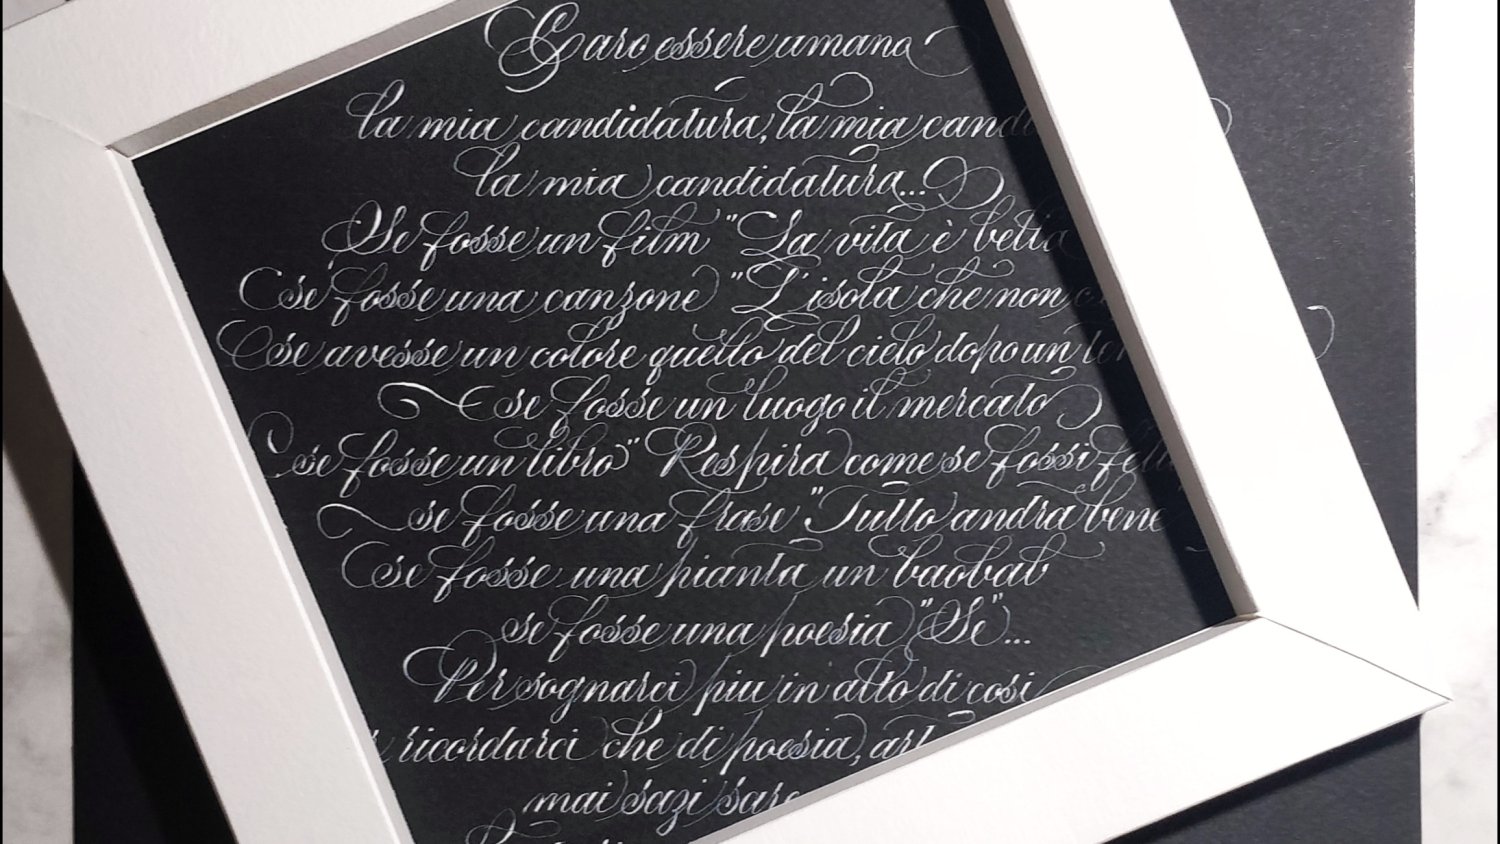 Caro essere umano
la mia candidatura, la mia cand
la mia candidatura...
Se fosse un film "La vita è bella
se fosse una canzone "L'isola che non
se avesse un colore quello del cielo dopo un
se fosse un luogo il mercato
se fosse un libro "Respira come se fossi
se fosse una frase "Tutto andrà bene
se fosse una pianta un baobab
se fosse una poesia "Se"...
Per sognarci più in alto di così
ricordarci che di poesia, art
mai sazi